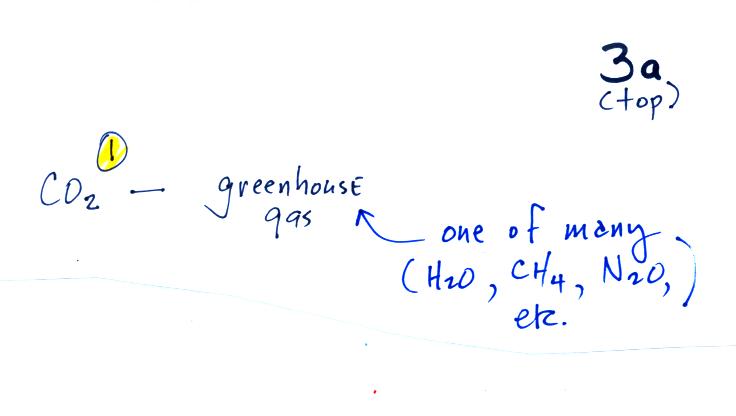 3a
(top)
1
CO₂ — greenhouse
gas
one of many
(H₂O, CH₄, N₂O,)
etc.